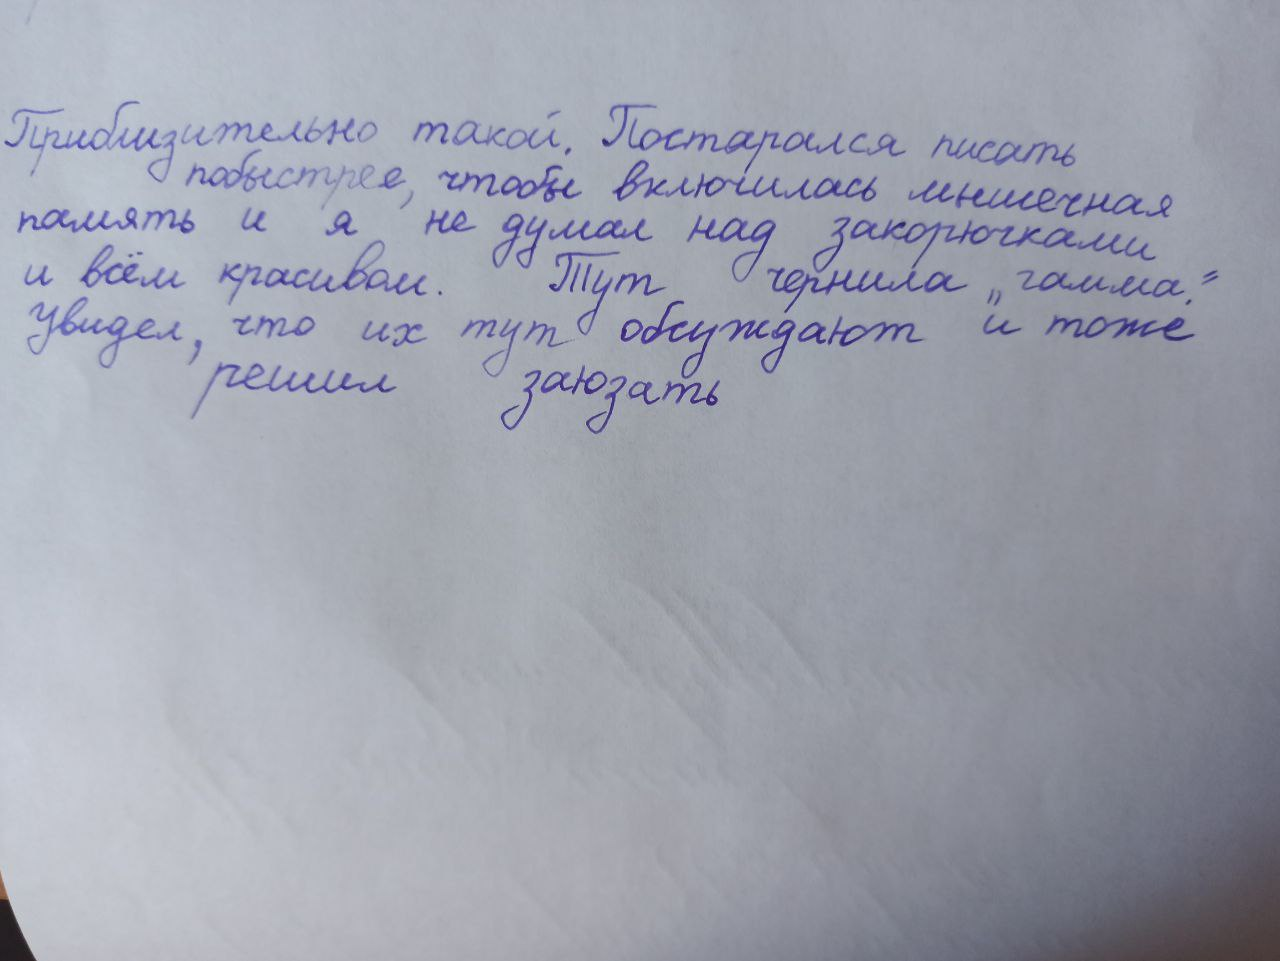 Приблизительно такой. Постарался писать
побыстрее, чтобы включилась мышечная
память и я не думал над закорючками
и всём красивом. Тут чернила „гамма."
Увидел, что их тут обсуждают и тоже
решил заюзать